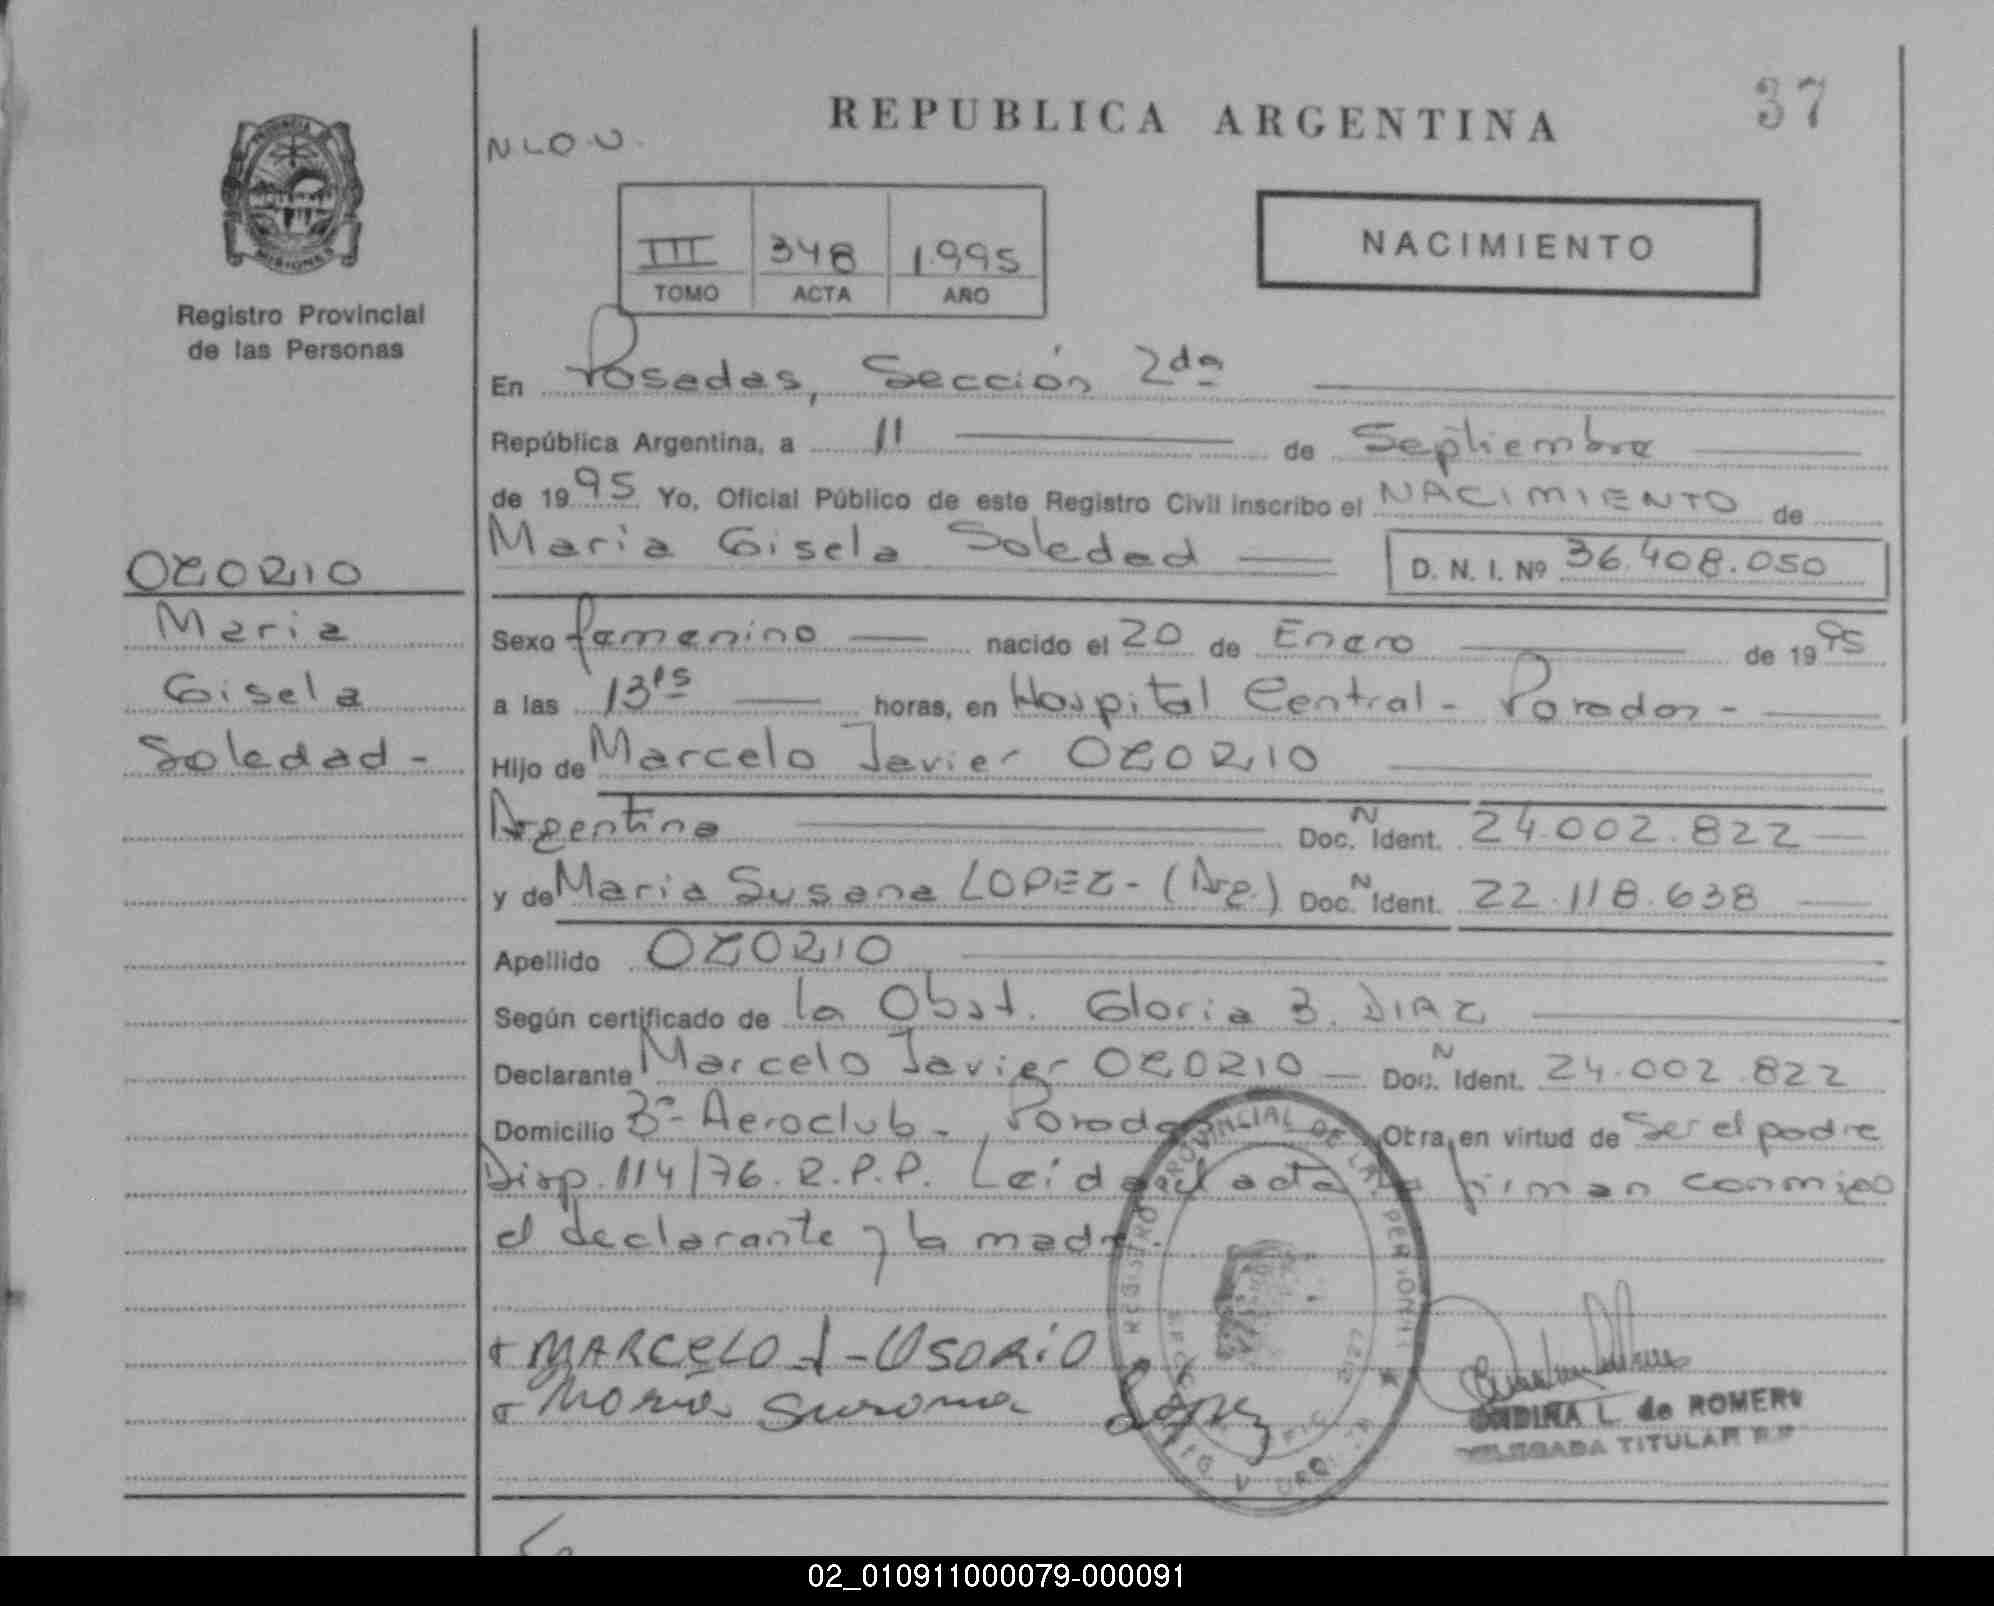 37
REPUBLICA ARGENTINA
NLO.U.
PROVINCIA
MISIONES
III 348 1995
TOMO ACTA AÑO
NACIMIENTO
Registro Provincial
de las Personas
En Posadas, Sección 2da
República Argentina, a 11 de Septiembre
de 1995 Yo, Oficial Público de este Registro Civil inscribo el NACIMIENTO de
Maria Gisela Soledad D. N. I. Nº 36.408.050
OZORIO
Maria
Gisela
Soledad -
Sexo femenino nacido el 20 de Enero de 1995
a las 13 15 horas, en Hospital Central - Posadas -
Hijo de Marcelo Javier OZORIO
Argentino Doc. N Ident. 24.002.822
y de Maria Susana LOPEZ - (Arg.) Doc. N Ident. 22.118.638
Apellido OZORIO
Según certificado de la Obst. Gloria B. DIAZ
Declarante Marcelo Javier OZORIO Doc. N Ident. 24.002.822
Domicilio Bº Aeroclub - Posadas Otra, en virtud de Ser el padre
Disp. 114/76. R.P.P. Leída el acta la firman conmigo
el declarante y la madre.
REGISTRO PROVINCIAL DE LAS PERSONAS
MARCELO J - OSORIO
Maria Susana Lopez
ONDINA L. de ROMERO
DELEGADA TITULAR R.P.
02_010911000079-000091